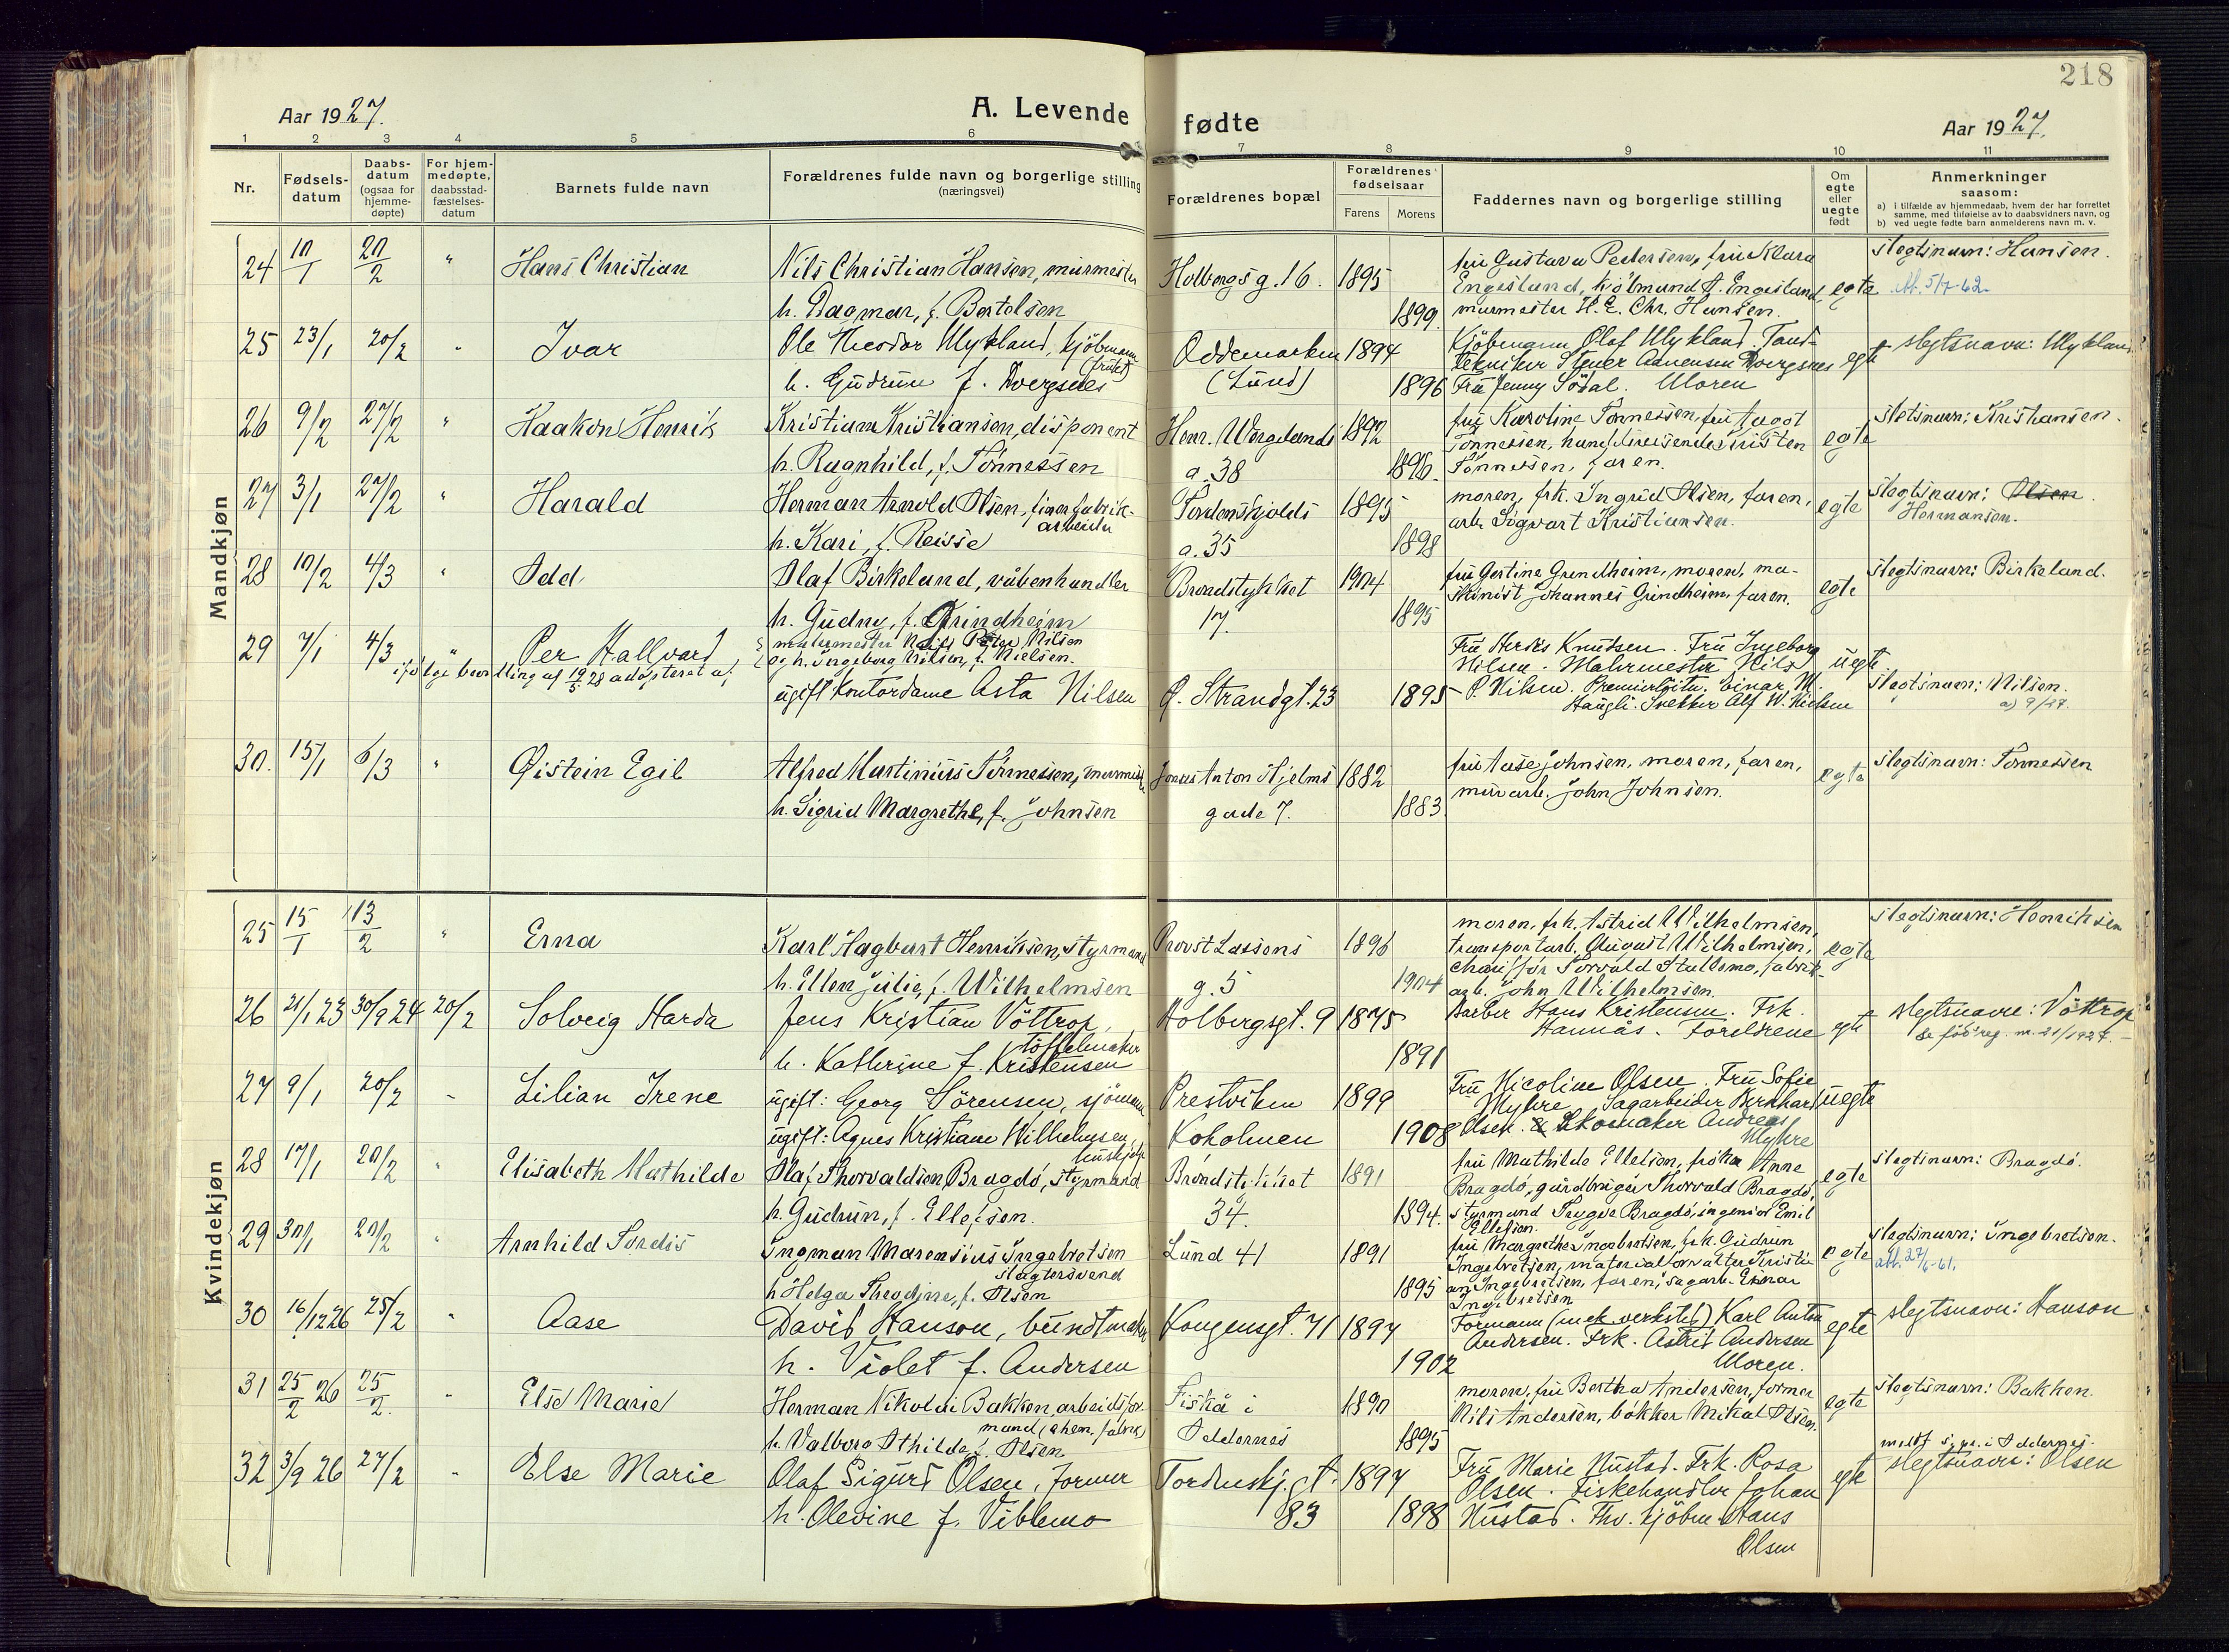 218
Aar 1927.
A. Levende fødte
Aar 1927.
1 2 3 4 5 6 7 8 9 10 11
Nr.
Fødsels-
datum
Daabs-
datum
(ogsaa for
hjemme-
døpte)
For hjem-
medøpte,
daabsstad-
fæstelses-
datum
Barnets fulde navn
Forældrenes fulde navn og borgerlige stilling
(næringsvei)
Forældrenes bopæl
Forældrenes
fødselsaar
Farens Morens
Faddernes navn og borgerlige stilling
Om
egte
eller
uegte
født
Anmerkninger
saasom:
a) i tilfælde av hjemmedaab, hvem der har forrettet
samme, med tilføielse av to daabsvidners navn, og
b) ved uegte fødte barn anmelderens navn m. v.
Mandkjøn
24 10/1 20/2 " Hans Christian
Nils Christian Hansen, murmester
h. Dagmar, f. Bertelsen
Holbergs g. 16. 1895
1899.
fru Gustava Pedersen, fru Klara
Engesland, kjölmand A. Engesland,
murmester H. E. Chr. Hansen.
egte
slegtsnavn: Hansen.
Att. 5/7-62.
25 23/1 20/2 " Ivar
Ole Theodor Mykland, kjöbmann
(frukt)
h. Gudrun f. Dvergsnes
Oddemarken 1894
(Lund) 1896
Kjöbmann Olaf Mykland. Tand-
tekniker Stener Aanensen Dvergsnes
Fru Jenny Södal. Moren
egte
slegtsnavn: Mykland
26 9/2 27/2 " Haakon Henrik
Kristian Kristiansen, disponent
h. Ragnhild, f. Tönnessen
Henr. Wergelands 1892
g. 38 1896.
fru Karoline Tönnessen, fru Aagot
Tönnessen, handelsreisende Kristen
Tönnessen, faren.
egte
sletsnavn: Kristiansen.
27 3/1 27/2 " Harald
Herman Arnold Olsen, finerfabrik-
arbeider
h. Kari, f. Reisse
Tordenskjolds 1895
g. 35 1898
moren, frk. Ingrid Olsen, faren,
arb. Sigvart Kristiansen.
egte
slegtsnavn: Olsen.
Hermansen.
28 10/2 4/3 " Odd
Olaf Birkeland, våbenhandler
h. Gudny, f. Grindheim
Brøndstykket 1904
17. 1895
fru Gertine Grundheim, moren, ma-
skinist Johannes Grindheim, faren.
egte
slegtsnavn: Birkeland.
29 7/1 4/3 " Per Hallvard
ifölge bevilling af 19/5 28 adopteret af
malermester Nils Peter Nilsen
og h. Ingeborg Nilsen, f. Nielsen.
ugift Kontordame Asta Nilsen
Ø. Strandgt. 23 1895
Fru Herdis Knudsen. Fru Ingeborg
Nilsen. Malermester Nils
P. Nilsen. Premierlöitn. Einar M.
Haugli. Snekker Alf W. Nielsen
uegte.
slegtsnavn: Nilsen.
a) 9/27.
30. 15/1 6/3 " Øistein Egil
Alfred Martinius Tönnessen, murmester
h. Sigrid Margrethe, f. Johnsen
Jonas Anton Hjelms 1882
gade 7. 1883
fru Aase Johnsen, moren, faren,
murarb. John Johnsen.
egte
slegtsnavn: Tönnessen
Kvindekjøn
25 15/1 13/2 " Erna
Karl Hagbart Henriksen, styrmand
h. Ellen Julie, f. Wilhelmsen
Provst Lassens 1896
g. 5 1904
moren, frk. Astrid Wilhelmsen,
transportarb. August Wilhelmsen,
chauffør Torvald Stallemo, fabrik-
arb. John Wilhelmsen.
egte
slegtsnavn: Henriksen
26 21/1 23 30/9 24 20/2 Solveig Harda
Jens Kristian Vöttrop,
töffelmaker
h. Kathrine f. Kristensen
Holbergsgt. 9 1875
1891
Barber Hans Kristensen. Frk.
Hannås. Foreldrene
egte
slegtsnavn: Vöttrop
Se fös.reg. nr. 21/1927.
27 9/1 20/2 " Lilian Irene
ugift: Georg Sörensen, sjömann
ugift: Agnes Kristiane Wilhelmsen,
hushjelp
Prestviken 1899
Koholmen 1908
Fru Nicoline Olsen. Fru Sofie
Myhre. Sagarbeider Bernhard
Olsen. Skomaker Andreas
Myhre
uegte
28 17/1 20/2 Elisabeth Mathilde
Olaf Thorvaldsen Bragdö, styrmand
h. Gudrun, f. Ellefsen.
Brøndstykket 1891
34. 1894.
fru Mathilde Ellefsen, frøken Anne
Bragdö, gårdbruger Thorvald Bragdö,
styrmand Trygve Bragdö, ingeniör Emil
Ellefsen.
egte
slegtsnavn: Bragdö.
29 30/1 20/2 " Arnhild Tordis
Ingman Marensius Ingebretsen
slagtersvend
h Helga Theodine, f. Olsen
Lund 41 1891
1895
fru Margrethe Ingebretsen, frk. Gudrun
Ingebretsen, materialforvalter Kristi-
an Ingebretsen, faren, sagarb. Einar
Ingebretsen
egte
slegtsnavn: Ingebretsen.
att. 27/6-61.
30 16/12 26 25/2 " Aase
David Hanson, buntmaker
h. Violet f. Andersen
Kongensgt. 71 1897
1902
Formann (mek. verksted) Karl Anton
Andersen. Frk. Astrid Andersen
Moren.
egte
slegtsnavn: Hanson
31 25/2 26 25/2 " Else Marie
Herman Nikolai Bakken, arbeidsfor-
mand (chem. fabrik)
h. Valborg Othilde, f. Olsen
Fiskå i 1890
Oddernes 1895
moren, fru Bertha Andersen, former
Nils Andersen, bökker Mikal Olsen.
egte
slegtsnavn: Bakken.
32 3/9 26 27/2 " Else Marie
Olaf Sigurd Olsen, former
h. Olevine f. Viblemo
Tordenskj. gt. 1897
83 1898
Fru Marie Hustad. Frk. Rosa
Olsen. Fiskehandler Johan
Hustad. Fhv. kjöbm. Hans
Olsen
egte
slegtsnavn: Olsen